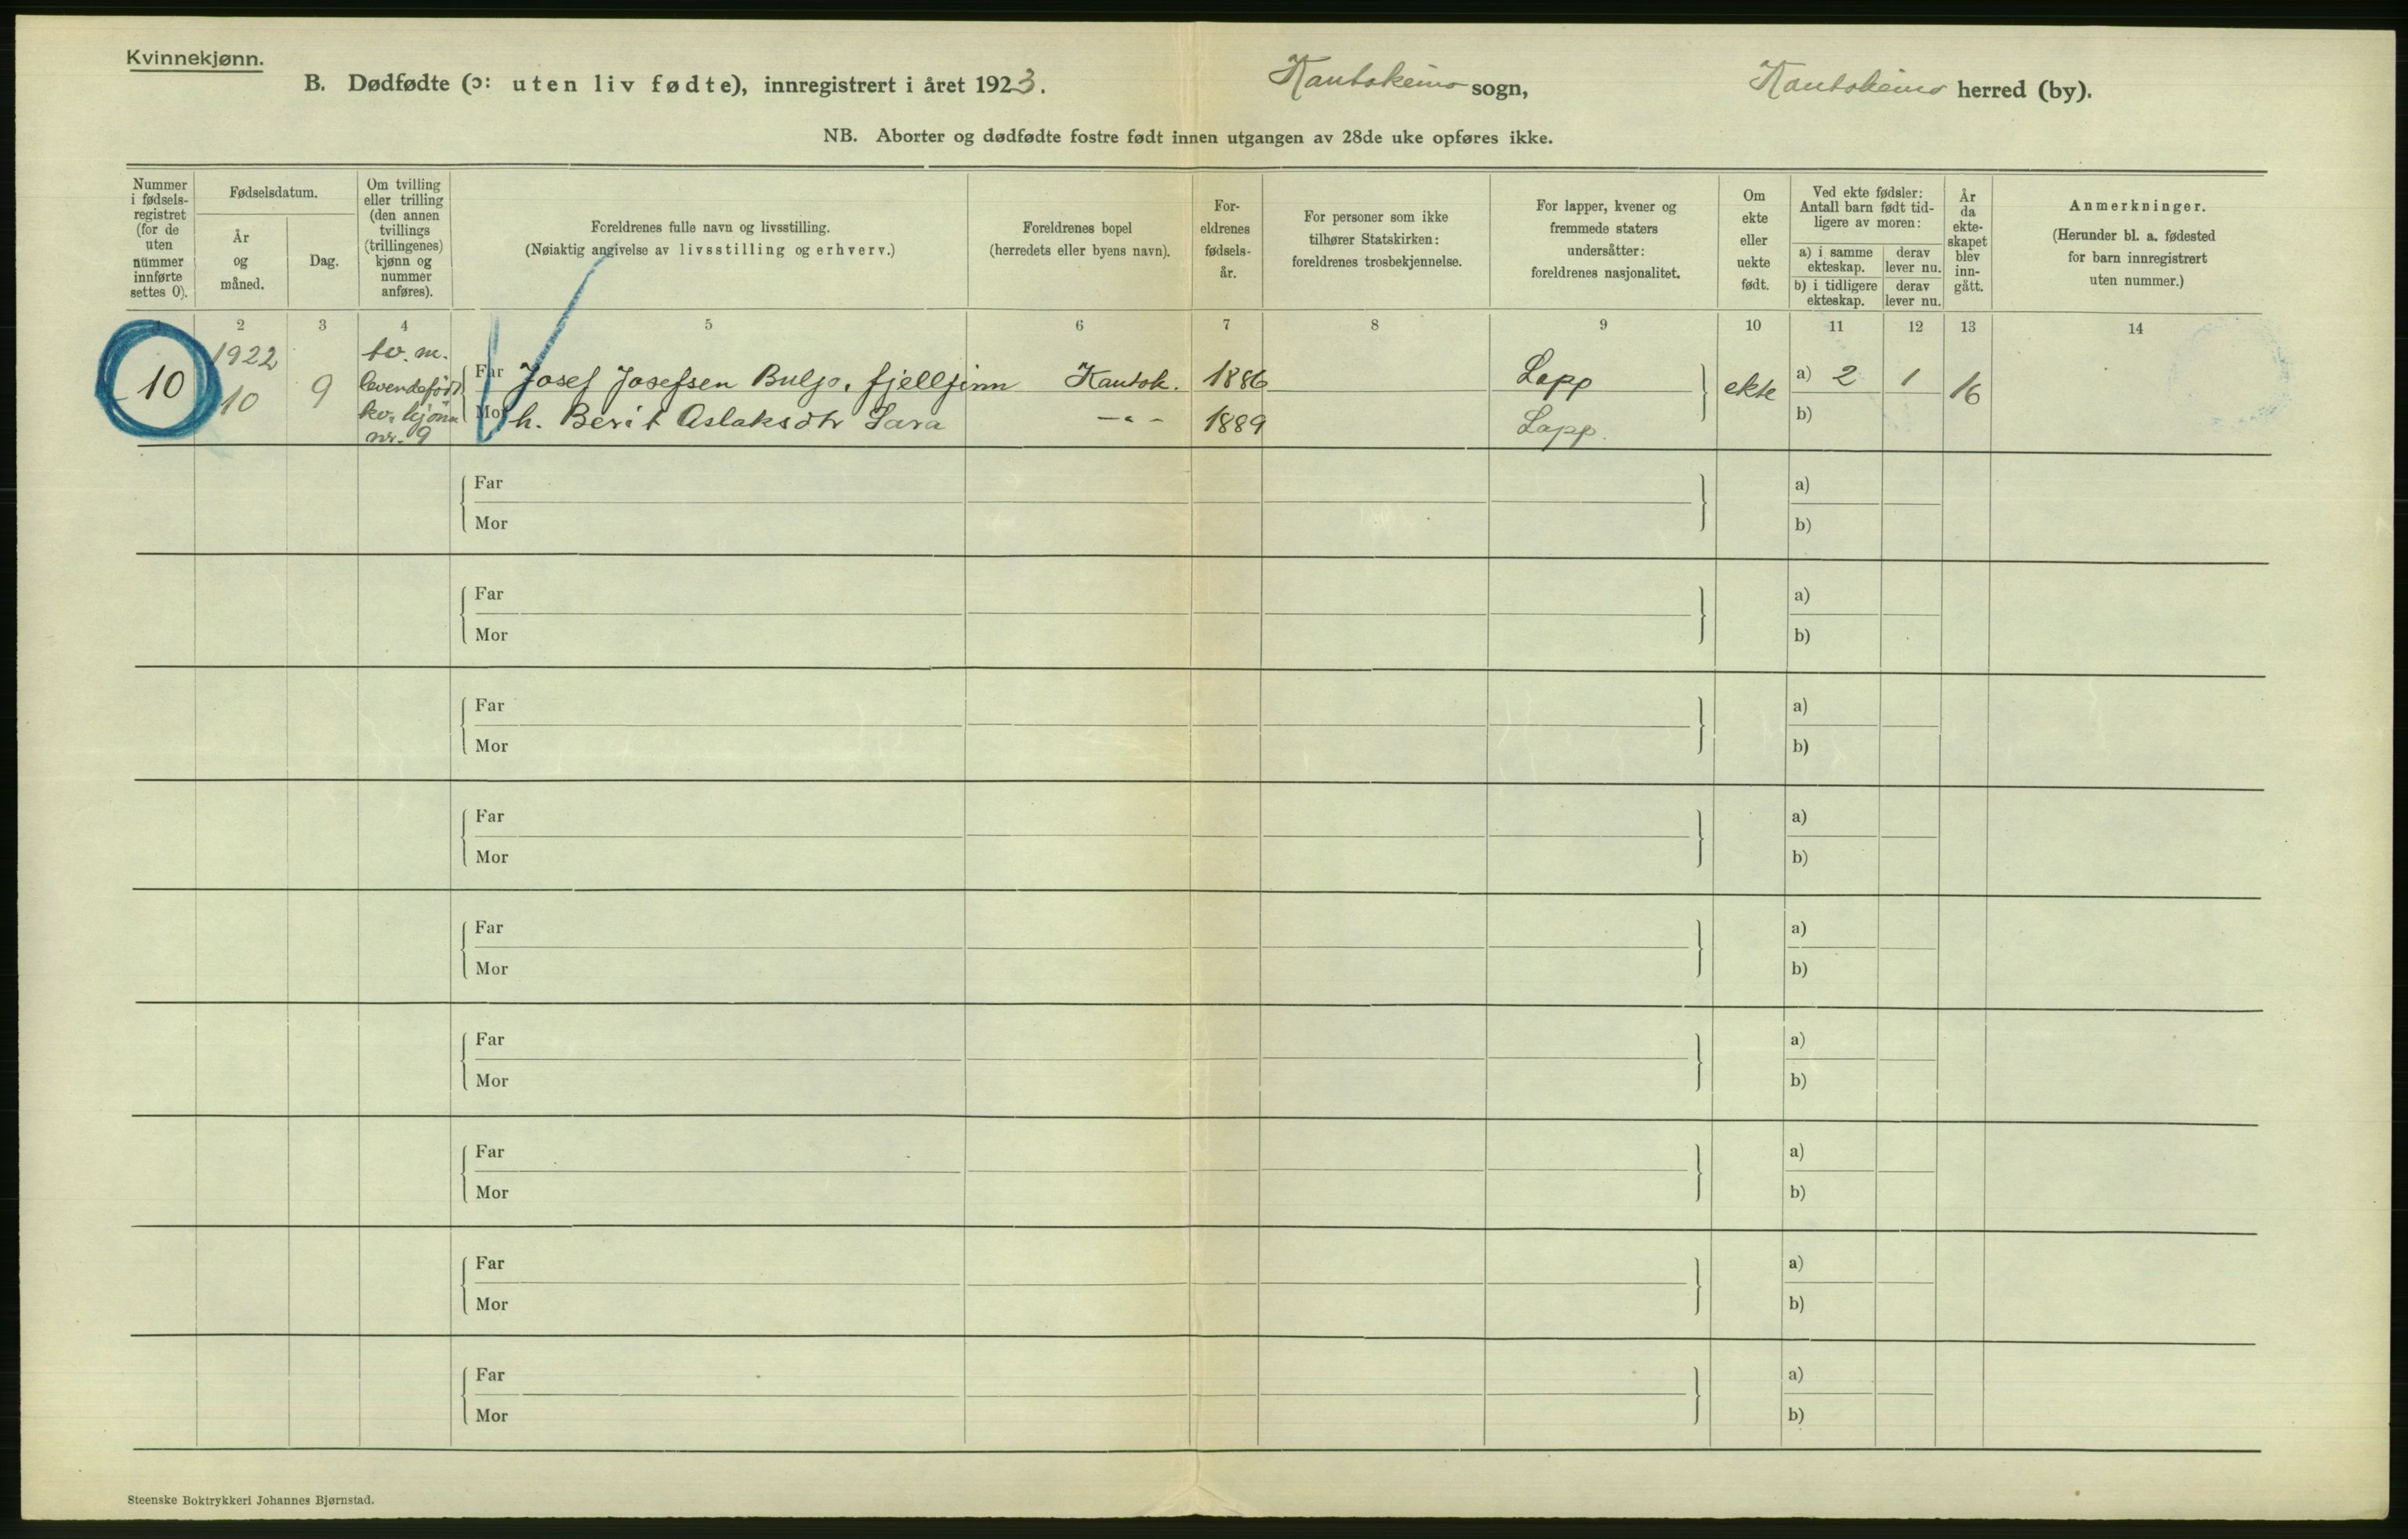 Kvinnekjønn.
B. Dødfødte (ɔ: uten liv fødte), innregistrert i året 1923.
Kautokeino sogn,
Kautokeino herred (by).
NB. Aborter og dødfødte fostre født innen utgangen av 28de uke opføres ikke.
Nummer
i fødsels-
registret
(for de
uten
nummer
innførte
settes 0).
Fødselsdatum.
År
og
måned.
Dag.
Om tvilling
eller trilling
(den annen
tvillings
(trillingenes)
kjønn og
nummer
anføres).
Foreldrenes fulle navn og livsstilling.
(Nøiaktig angivelse av livsstilling og erhverv.)
Foreldrenes bopel
(herredets eller byens navn).
For-
eldrenes
fødsels-
år.
For personer som ikke
tilhører Statskirken:
foreldrenes trosbekjennelse.
For lapper, kvener og
fremmede staters
undersåtter:
foreldrenes nasjonalitet.
Om
ekte
eller
uekte
født.
Ved ekte fødsler:
Antall barn født tid-
ligere av moren:
a) i samme
ekteskap.
derav
lever nu.
b) i tidligere
ekteskap.
derav
lever nu.
År
da
ekte-
skapet
blev
inn-
gått.
Anmerkninger.
(Herunder bl. a. fødested
for barn innregistrert
uten nummer.)
1 2 3 4 5 6 7 8 9 10 11 12 13 14
10
1922
10
9
tv. m.
levendefødt
kv. kjønn
nr. 9
Far Josef Josefsen Buljo, fjellfinn Kautok. 1886 Lapp
Mor h. Berit Aslaksdtr Sara -"- 1889 Lapp.
ekte
a) 2 1
b)
16
Far a)
Mor b)
Far a)
Mor b)
Far a)
Mor b)
Far a)
Mor b)
Far a)
Mor b)
Far a)
Mor b)
Far a)
Mor b)
Far a)
Mor b)
Far a)
Mor b)
Steenske Boktrykkeri Johannes Bjørnstad.